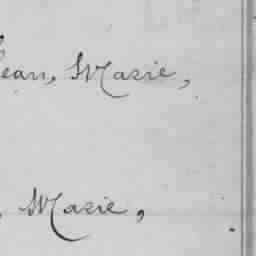 Jean, Marie,
, Marie,